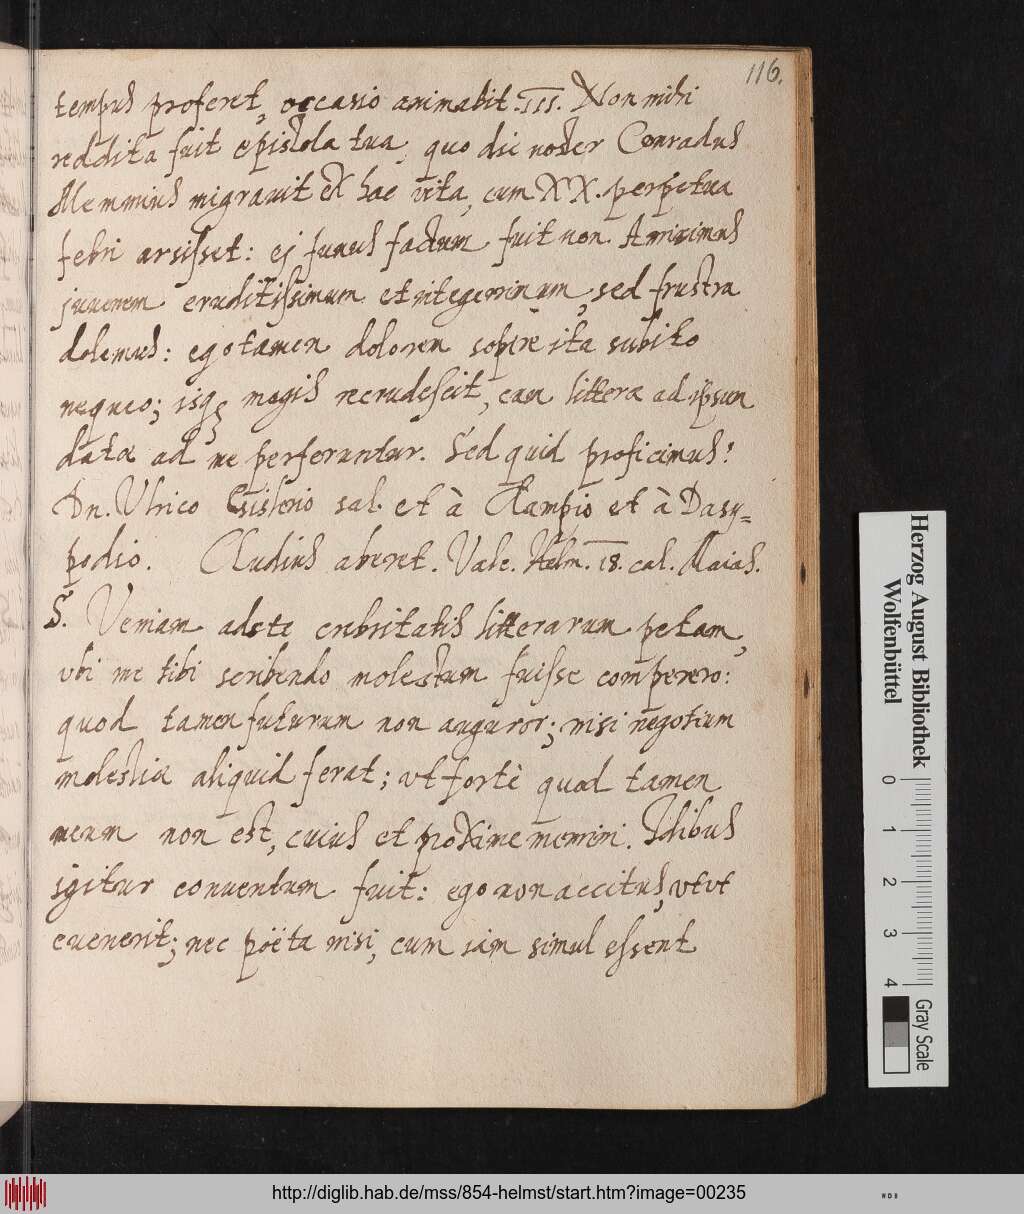 116.
tempus proferet, occasio animabit. III. Non mihi
reddita fuit epistola tua, quo die noster Conradus
Memmius migrauit ex hac vita, cum XX. perpetua
febri arsisset: ej funus factum fuit non. Amisimus
juuenem eruditissimum et integerrimum, sed frustra
dolemus: ego tamen dolorem sopire ita subito
nequeo; isq; magis recrudescit, cum litterae ad ipsum
datae ad me perferuntur. Sed quid proficimus?
Dn. Vlrico sal. et à Clampio et à Dasy=
podio. Cludius aberet. Vale. Helm. 18. cal. Maias.
S. Veniam adste crebritatis litterarum petam,
vbi me tibi scribendo molestum fuisse comperero:
quod tamen futurum non auguror; nisi negotium
molestiae aliquid ferat; vt fortè quod tamen
meum non est, cuius et proxime memini. Idibus
igitur conuentum fuit: ego non accitus, vtvt
euenerit; nec poëta nisi, cum iam simul essent
Herzog August Bibliothek
Wolfenbüttel
0 1 2 3 4
Gray Scale
http://diglib.hab.de/mss/854-helmst/start.htm?image=00235